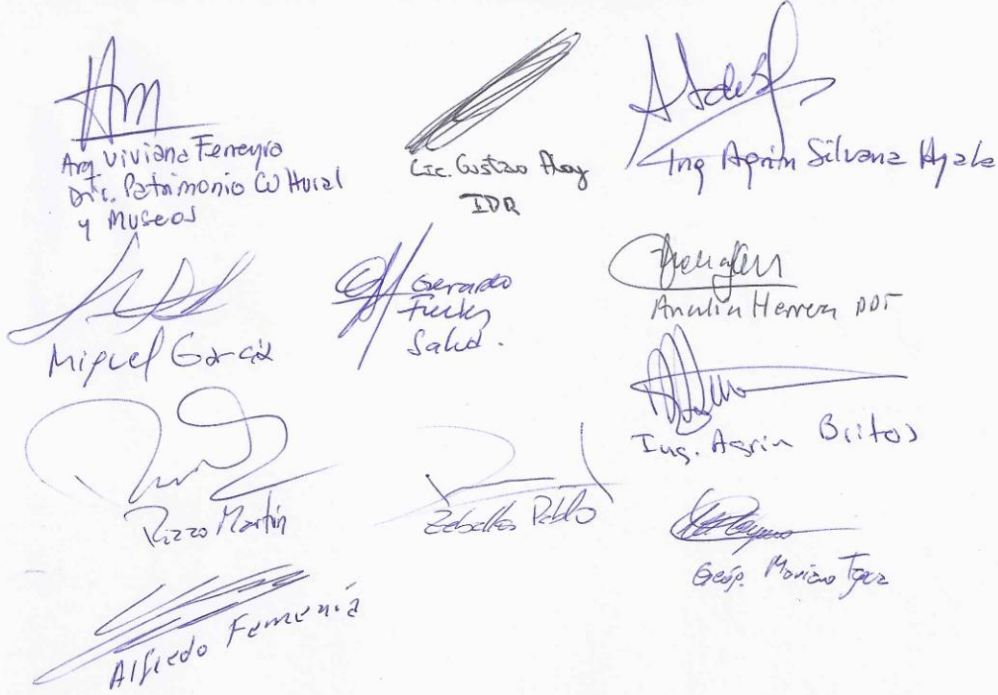 Arq Viviana Ferreyra
Dir. Patrimonio Cultural
y Museos
Lic. Gustavo
IDR
Ing Agrim Silvana Ayala
Miguel García
Gerardo
Salud.
Analia Herrera DDT
Ing. Agrim Britos
Rizzo Martín
Zeballos Pablo
Geóg. Mariano
Alfredo Femenía